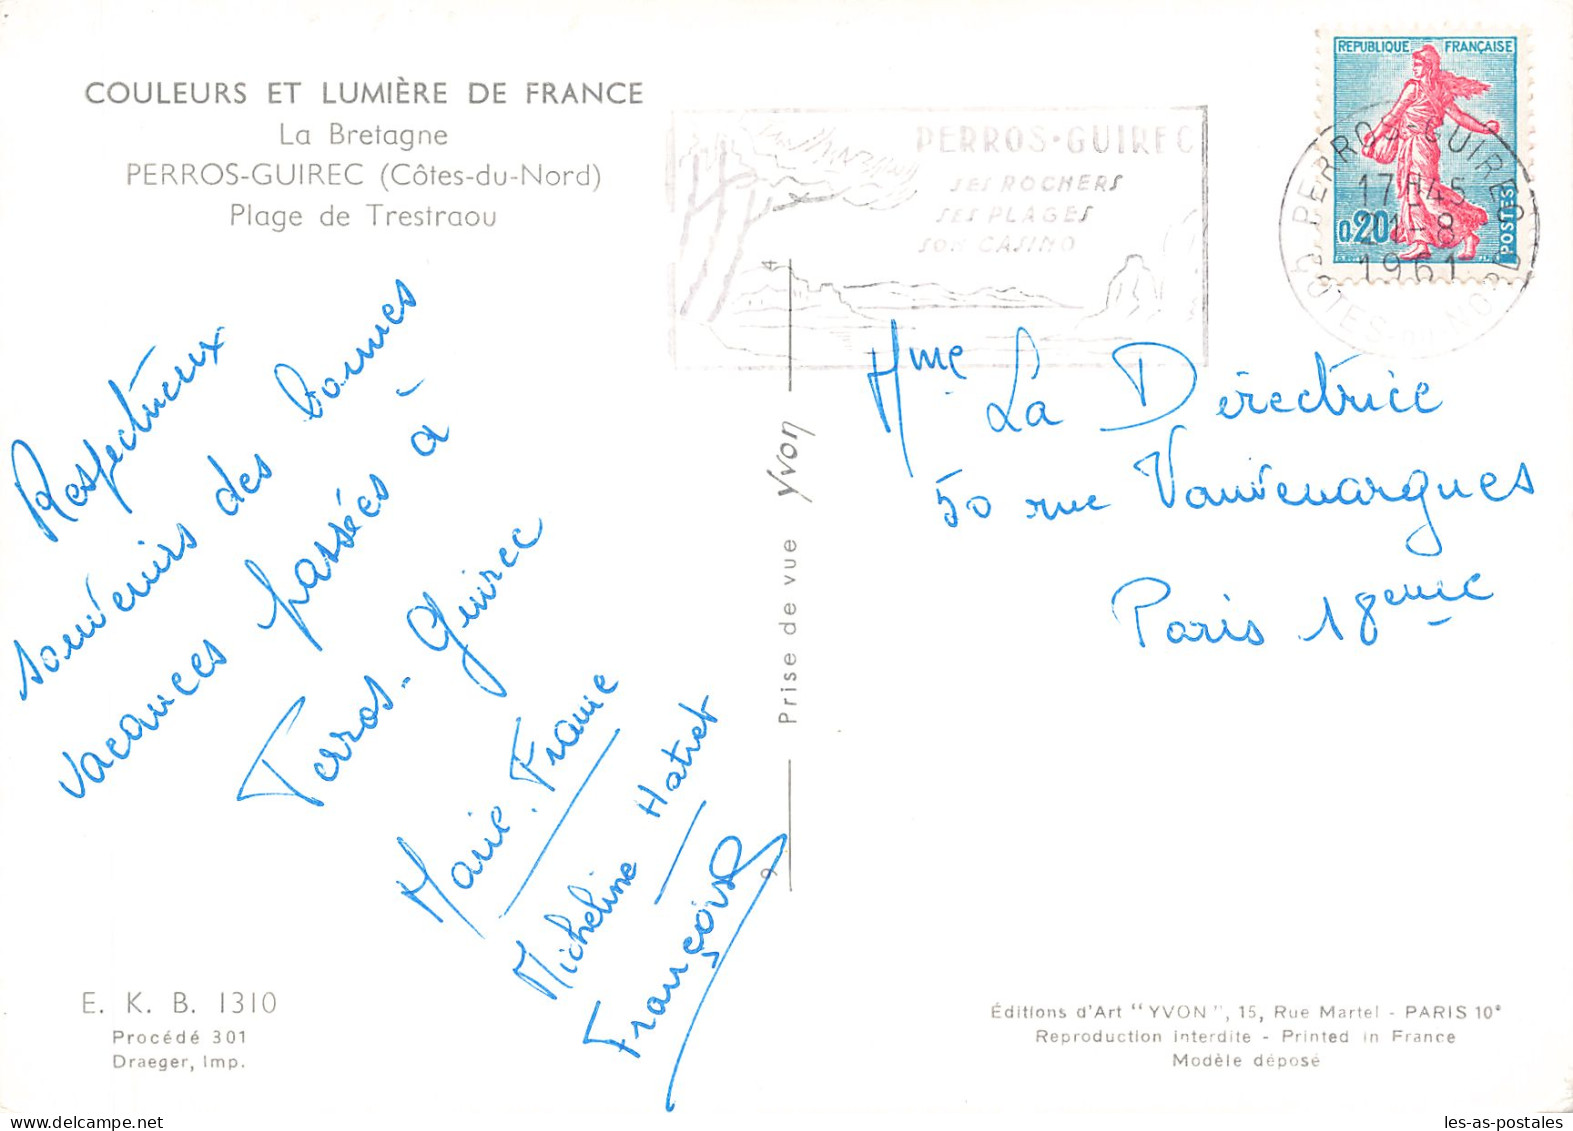 COULEURS ET LUMIÈRE DE FRANCE
La Bretagne
PERROS-GUIREC (Côtes-du-Nord)
Plage de Trestraou
PERROS-GUIREC
SES ROCHERS
SES PLAGES
SON CASINO
REPUBLIQUE FRANÇAISE
0,20
POSTES
PERROS-GUIREC
17H45
21-8
1961
COTES DU NORD
Respectueux
souvenirs des bonnes
vacances passées à
Perros-Guirec
Marie-France
Micheline Hatret
Françoise
Mme La Directrice
50 rue Vauvenargues
Paris 18eme
Prise de vue Yvon
E. K. B. 1310
Procédé 301
Draeger, Imp.
Éditions d'Art "YVON", 15, Rue Martel - PARIS 10e
Reproduction interdite - Printed in France
Modèle déposé
les-as-postales